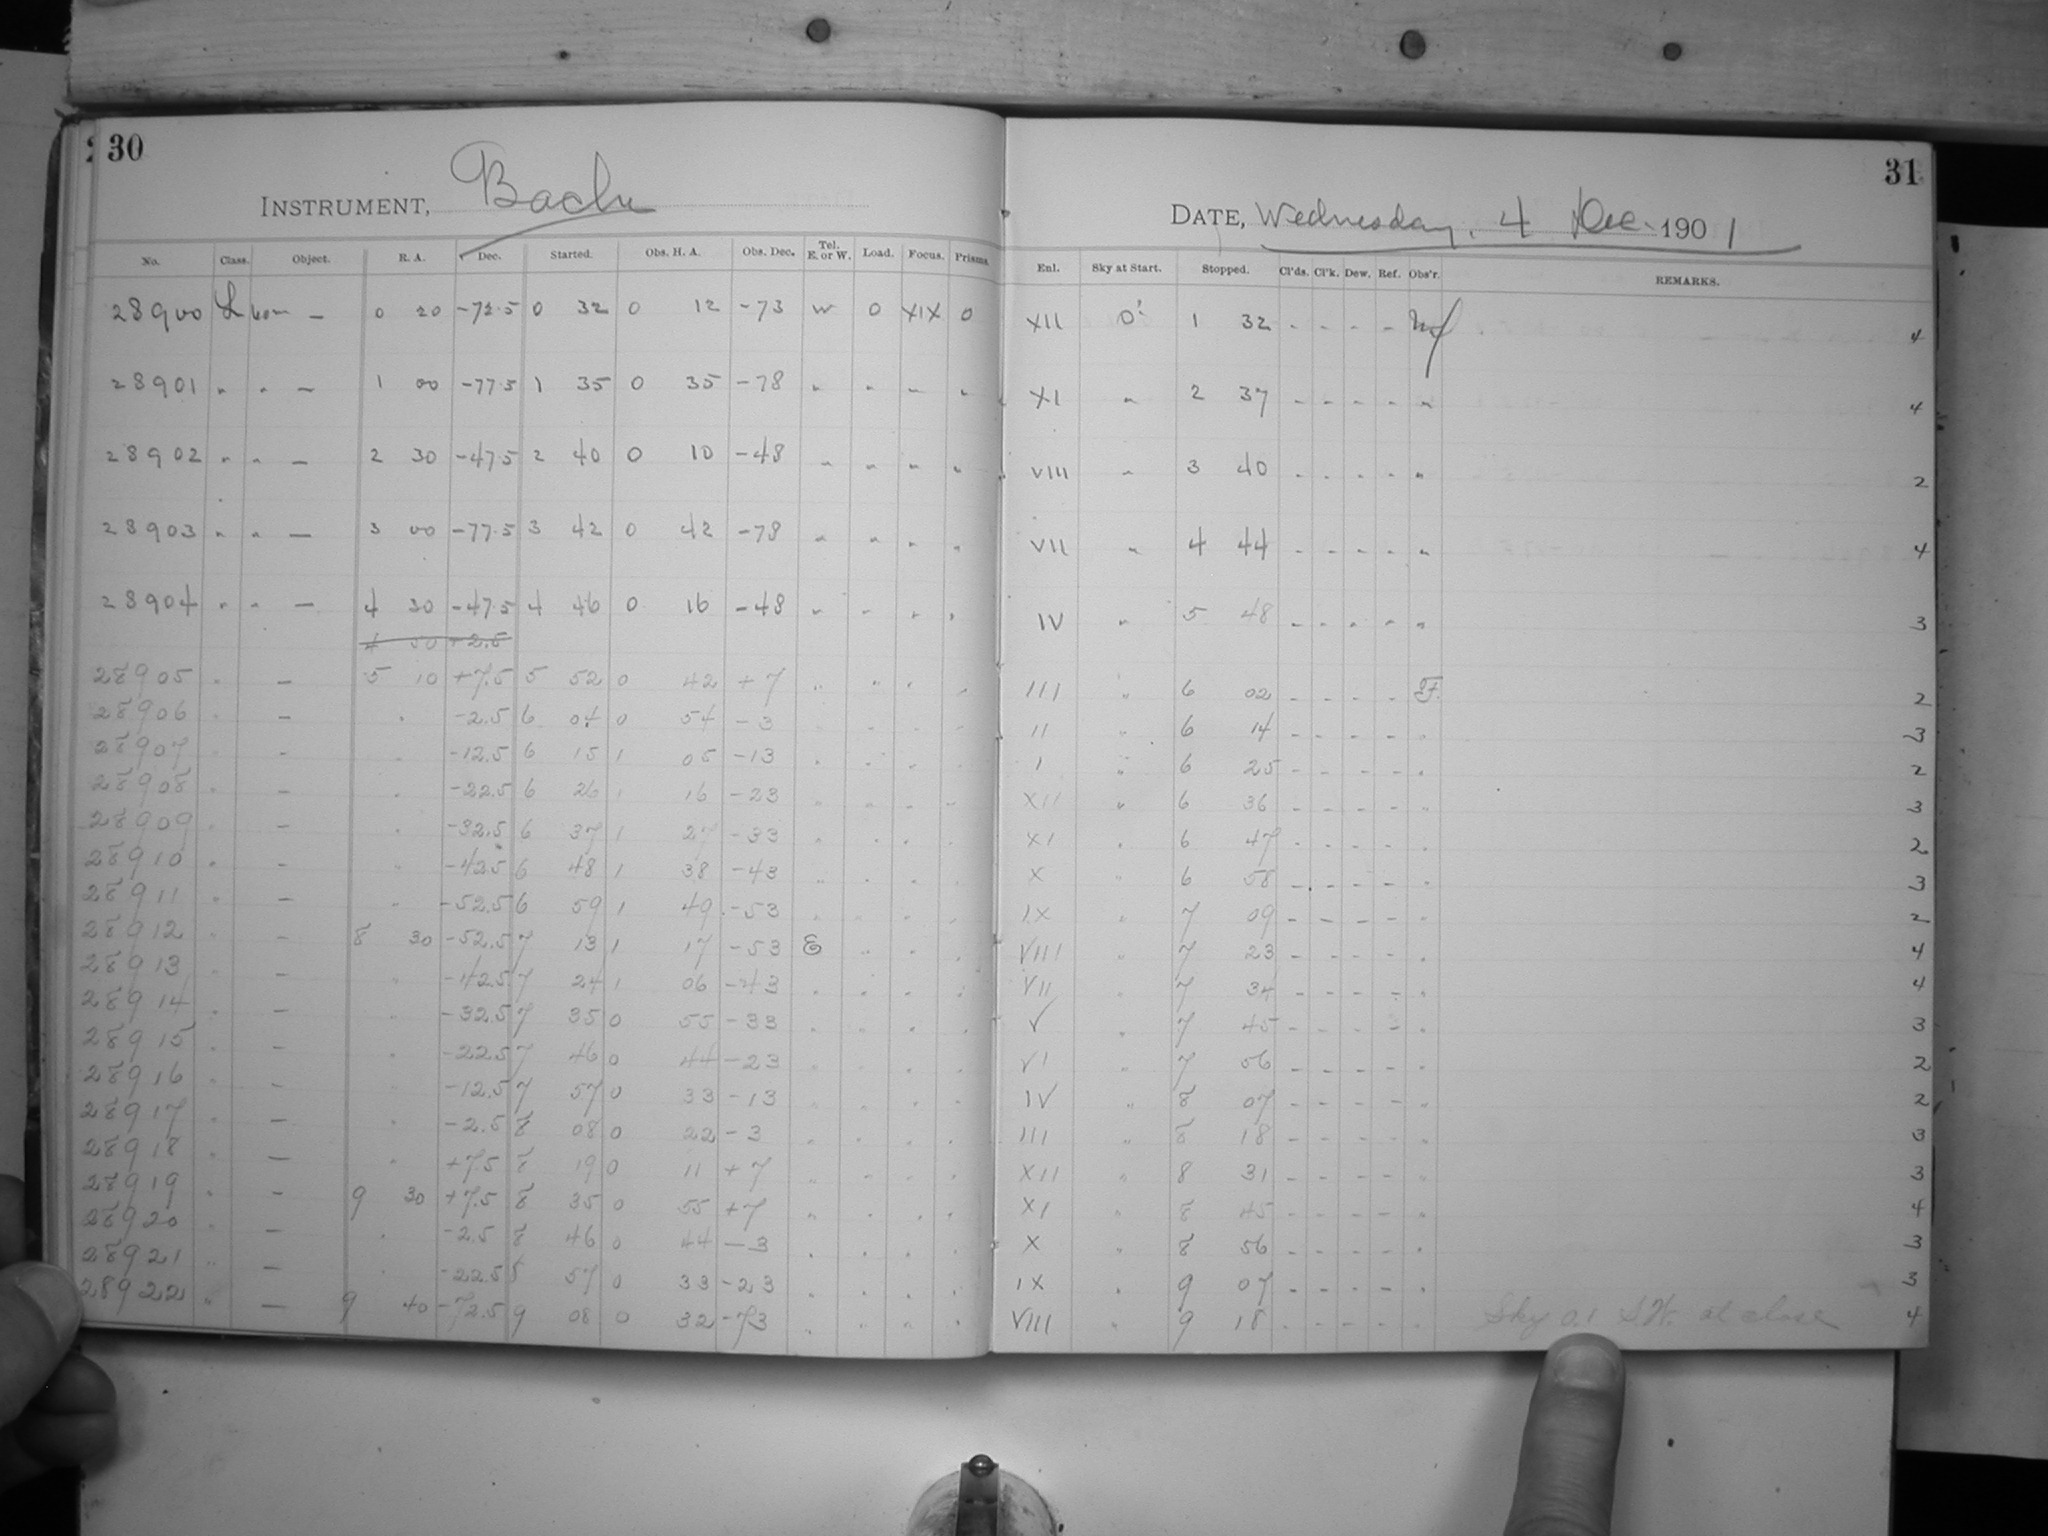 30
INSTRUMENT, Bache
No. Class. Object. R. A. Dec. Started. Obs. H. A. Obs. Dec. Tel. E. or W. Load. Focus. Prisms.
28900 L 60m — 0 20 -72.5 0 32 0 12 -73 W 0 XIX 0
28901 " " — 1 00 -77.5 1 35 0 35 -78 " " " "
28902 " " — 2 30 -47.5 2 40 0 10 -48 " " " "
28903 " " — 3 00 -77.5 3 42 0 42 -78 " " " "
28904 " " — 4 30 -47.5 4 46 0 16 -48 " " " "
4 50 +2.5
28905 " — 5 10 +7.5 5 52 0 42 +7 " " " "
28906 " — " -2.5 6 04 0 54 -3 " " " "
28907 " — " -12.5 6 15 1 05 -13 " " " "
28908 " — " -22.5 6 26 1 16 -23 " " " "
28909 " — " -32.5 6 37 1 27 -33 " " " "
28910 " — " -42.5 6 48 1 38 -43 " " " "
28911 " — " -52.5 6 59 1 49 -53 " " " "
28912 " — 8 30 -52.5 7 13 1 17 -53 E " " "
28913 " — " -42.5 7 24 1 06 -43 " " " "
28914 " — " -32.5 7 35 0 55 -33 " " " "
28915 " — " -22.5 7 46 0 44 -23 " " " "
28916 " — " -12.5 7 57 0 33 -13 " " " "
28917 " — " -2.5 8 08 0 22 -3 " " " "
28918 " — " +7.5 8 19 0 11 +7 " " " "
28919 " — 9 30 +7.5 8 35 0 55 +7 " " " "
28920 " — " -2.5 8 46 0 44 -3 " " " "
28921 " — " -22.5 8 57 0 33 -23 " " " "
28922 " — 9 40 -72.5 9 08 0 32 -73 " " " "
31
DATE, Wednesday, 4 Dec. 1901
Enl. Sky at Start. Stopped. Cl'ds. Cl'k. Dew. Ref. Obs'r. REMARKS.
XII 0 1 32 - - - - 4
XI " 2 37 - - - - " 4
VIII " 3 40 - - - - " 2
VII " 4 44 - - - - " 4
IV " 5 48 - - - - " 3
III " 6 02 - - - - F. 2
II " 6 14 - - - - " 3
I " 6 25 - - - - " 2
XII " 6 36 - - - - " 3
XI " 6 47 - - - - " 2
X " 6 58 - - - - " 3
IX " 7 09 - - - - " 2
VIII " 7 23 - - - - " 4
VII " 7 34 - - - - " 4
V " 7 45 - - - - " 3
VI " 7 56 - - - - " 2
IV " 8 07 - - - - " 2
III " 8 18 - - - - " 3
XII " 8 31 - - - - " 3
XI " 8 45 - - - - " 4
X " 8 56 - - - - " 3
IX " 9 07 - - - - " 3
VIII " 9 18 - - - - " Sky 0.1 S.W. at close 4